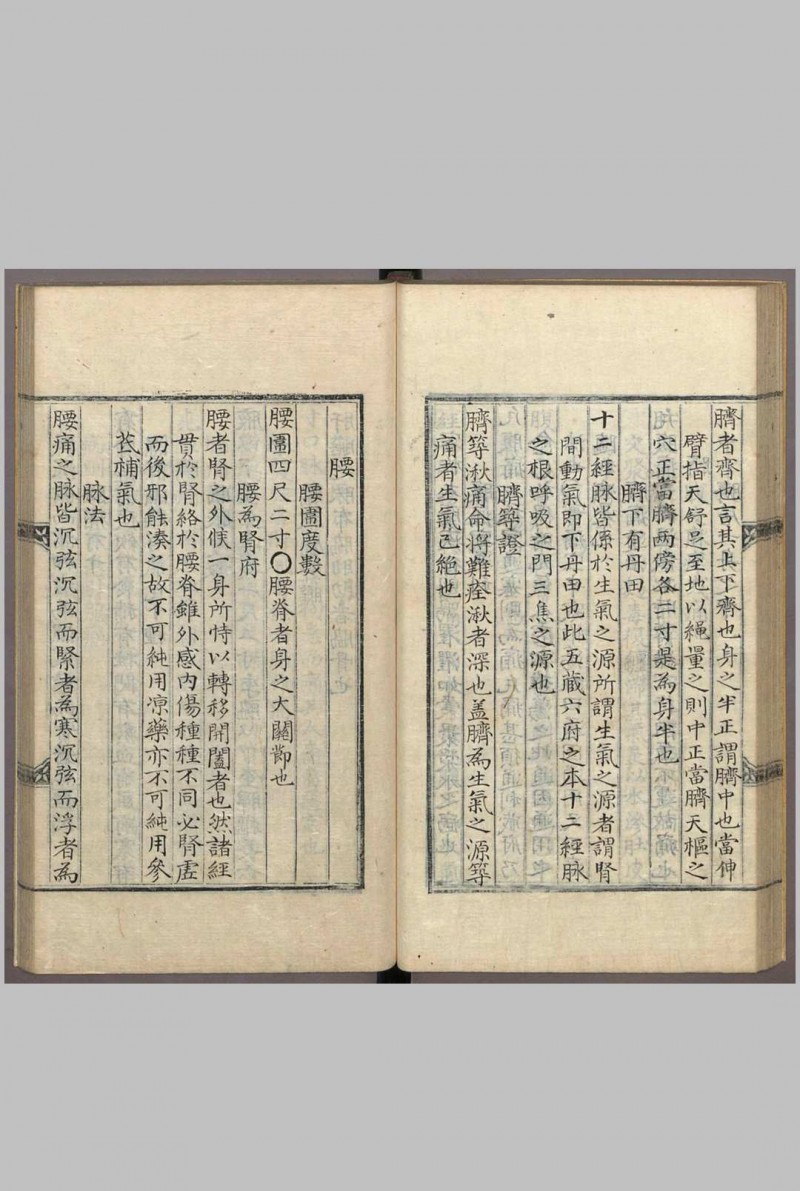 臍者齊也言其上下齊也身之半正謂臍中也當伸
臂指天舒足至地以繩量之則中正當臍天樞之
穴正當臍兩傍各二寸是為身半也
臍下有丹田
十二經脉皆係於生氣之源所謂生氣之源者謂腎
間動氣即下丹田也此五蔵六府之本十二經脉
之根呼吸之門三焦之源也
臍築證
臍築湫痛命將難痊湫者深也盖臍為生氣之源築
痛者生氣已絶也
腰
腰圍度數
腰圍四尺二寸〇腰脊者身之大關節也
腰為腎府
腰者腎之外候一身所恃以轉移開闔者也然諸經
貫於腎絡於腰脊雖外感內傷種種不同必腎虛
而後邪能湊之故不可純用凉藥亦不可純用參
芪補氣也
脉法
腰痛之脉皆沉弦沉弦而緊者為寒沉弦而浮者為